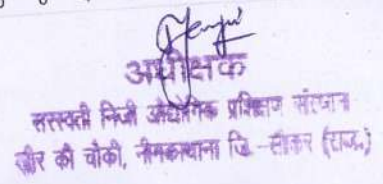 अधीक्षक
सरस्वती निजी औद्योगिक प्रशिक्षण संस्थान
की चौकी, नीमकाथाना जि.-सीकर (राज.)